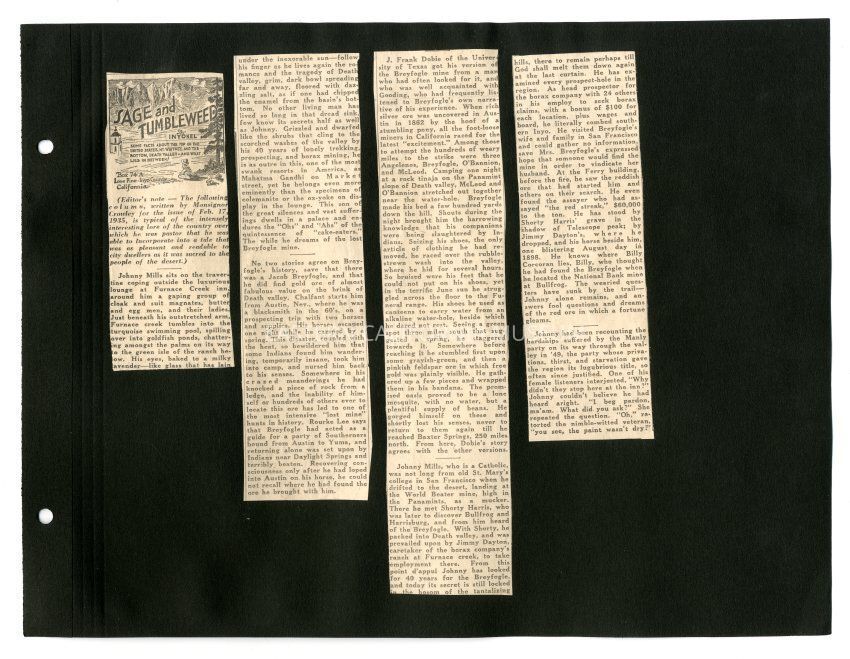 SAGE and
TUMBLEWEED
IN INYO KEL
SOME FACTS ABOUT THE TOP OF THE
UNITED STATES, MT. WHITNEY, AND ITS
BOTTOM, DEATH VALLEY — AND WHAT
LIES IN BETWEEN
Box 74 A
Lone Pine-Inyo
California.
(Editor's note — The following
column, written by Monsignor
Crowley for the issue of Feb. 17,
1935, is typical of the intensely
interesting lore of the country over
which he was pastor that he was
able to incorporate into a tale that
was as pleasant and readable to
city dwellers as it was sacred to the
people of the desert.)
Johnny Mills sits on the traver-
tine coping outside the luxurious
lounge at Furnace Creek inn,
around him a gaping group of
cloak and suit magnates, butter
and egg men, and their ladies.
Just beneath his outstretched arm,
Furnace creek tumbles into the
turquoise swimming pool, spilling
over into goldfish ponds, chatter-
ing amongst the palms on its way
to the green isle of the ranch be-
low. His eyes, baked to a milky
lavender—like glass that has lain
under the inexorable sun—follow
his finger as he lives again the ro-
mance and the tragedy of Death
valley, grim, dark bowl spreading
far and away, floored with daz-
zling salt, as if one had chipped
the enamel from the basin's bot-
tom. No other living man has
lived so long in that dread sink,
few know its secrets half as well
as Johnny. Grizzled and dwarfed
like the shrubs that cling to the
scorched washes of the valley by
his 40 years of lonely trekking,
prospecting, and borax mining, he
is as outre in this, one of the most
swank resorts in America, as
Mahatma Gandhi on Market
street, yet he belongs even more
eminently than the specimens of
colemanite or the ox-yoke on dis-
play in the lounge. This son of
the great silences and vast suffer-
ings dwells in a palace and en-
dures the "Ohs" and "Ahs" of the
quintessence of "cake-eaters."
The while he dreams of the lost
Breyfogle mine.
No two stories agree on Brey-
fogle's history, save that there
was a Jacob Breyfogle, and that
he did find gold ore of almost
fabulous value on the brink of
Death valley. Chalfant starts him
from Austin, Nev., where he was
a blacksmith in the 60's, on a
prospecting trip with two horses
and supplies. His horses escaped
one night while he camped by a
spring. This disaster, coupled with
the heat, so bewildered him that
some Indians found him wander-
ing, temporarily insane, took him
into camp, and nursed him back
to his senses. Somewhere in his
crazed meanderings he had
knocked a piece of rock from a
ledge, and the inability of him-
self or hundreds of others ever to
locate this ore has led to one of
the most intensive "lost mine"
hunts in history. Rourke Lee says
that Breyfogle had acted as a
guide for a party of Southerners
bound from Austin to Yuma, and
returning alone was set upon by
Indians near Daylight Springs and
terribly beaten. Recovering con-
sciousness only after he had loped
into Austin on his horse, he could
not recall where he had found the
ore he brought with him.
J. Frank Dobie of the Univer-
sity of Texas got his version of
the Breyfogle mine from a man
who had often looked for it, and
who was well acquainted with
Gooding, who had frequently lis-
tened to Breyfogle's own narra-
tive of his experience. When rich
silver ore was uncovered in Aus-
tin in 1862 by the hoof of a
stumbling pony, all the footloose
miners in California raced for the
latest "excitement." Among those
to attempt the hundreds of weary
miles to the strike were three
Angelenos, Breyfogle, O'Bannion,
and McLeod. Camping one night
at a rock tinaja on the Panamint
slopes of Death valley, McLeod and
O'Bannion stretched out together
near the water-hole. Breyfogle
made his bed a few hundred yards
down the hill. Shouts during the
night brought him the harrowing
knowledge that his companions
were being slaughtered by In-
dians. Seizing his shoes, the only
article of clothing he had re-
moved, he raced over the rubble-
strewn wash into the valley,
where he hid for several hours.
So bruised were his feet that he
could not put on his shoes, yet
in the terrific June sun he strug-
gled across the floor to the Fu-
neral range. His shoes he used as
canteens to carry water from an
alkaline water-hole, beside which
he dared not rest. Seeing a green
spot three miles south that sug-
gested a spring, he staggered
towards it. Somewhere before
reaching it he stumbled first upon
some grayish-green, and then a
pinkish feldspar ore in which free
gold was plainly visible. He gath-
ered up a few pieces and wrapped
them in his bandana. The prom-
ised oasis proved to be a lone
mesquite, with no water, but a
plentiful supply of beans. He
gorged himself on these and
shortly lost his senses, never to
return to them again till he
reached Baxter Springs, 250 miles
north. From here, Dobie's story
agrees with the other versions.
Johnny Mills, who is a Catholic,
was not long from old St. Mary's
college in San Francisco when he
drifted to the desert, landing at
the World Beater mine, high in
the Panamints, as a mucker.
There he met Shorty Harris, who
was later to discover Bullfrog and
Harrisburg, and from him heard
of the Breyfogle. With Shorty, he
packed into Death valley, and was
prevailed upon by Jimmy Dayton,
caretaker of the borax company's
ranch at Furnace creek, to take
employment there. From this
point d'appui Johnny has looked
for 40 years for the Breyfogle,
and today its secret is still locked
in the bosom of the tantalizing
hills, there to remain perhaps till
God shall melt them down again
at the last curtain. He has ex-
amined every prospect-hole in the
region. As head prospector for
the borax company with 24 others
in his employ to seek borax
claims, with a bonus of $100 for
each location, plus wages and
board, he literally combed south-
ern Inyo. He visited Breyfogle's
wife and family in San Francisco
and could gather no information,
save Mrs. Breyfogle's expressed
hope that someone would find the
mine in order to vindicate her
husband. At the Ferry building,
before the fire, he saw the reddish
ore that had started him and
others on their search. He even
found the assayer who had as-
sayed "the red streak," $60,000
to the ton. He has stood by
Shorty Harris' grave in the
shadow of Telescope peak; by
Jimmy Dayton's, where he
dropped, and his horse beside him,
one blistering August day in
1898. He knows where Billy
Corcoran lies, Billy, who thought
he had found the Breyfogle when
he located the National Bank mine
at Bullfrog. The wearied ques-
ters have sunk by the trail—
Johnny alone remains, and an-
swers fool questions and dreams
of the red ore in which a fortune
gleams.
Johnny had been recounting the
hardships suffered by the Manly
party on its way through the val-
ley in '49, the party whose priva-
tions, thirst, and starvation gave
the region its lugubrious title, so
often since justified. One of his
female listeners interjected, "Why
didn't they stop here at the inn?"
Johnny couldn't believe he had
heard aright. "I beg pardon,
ma'am. What did you ask?" She
repeated the question. "Oh," re-
torted the nimble-witted veteran,
"you see, the paint wasn't dry!"